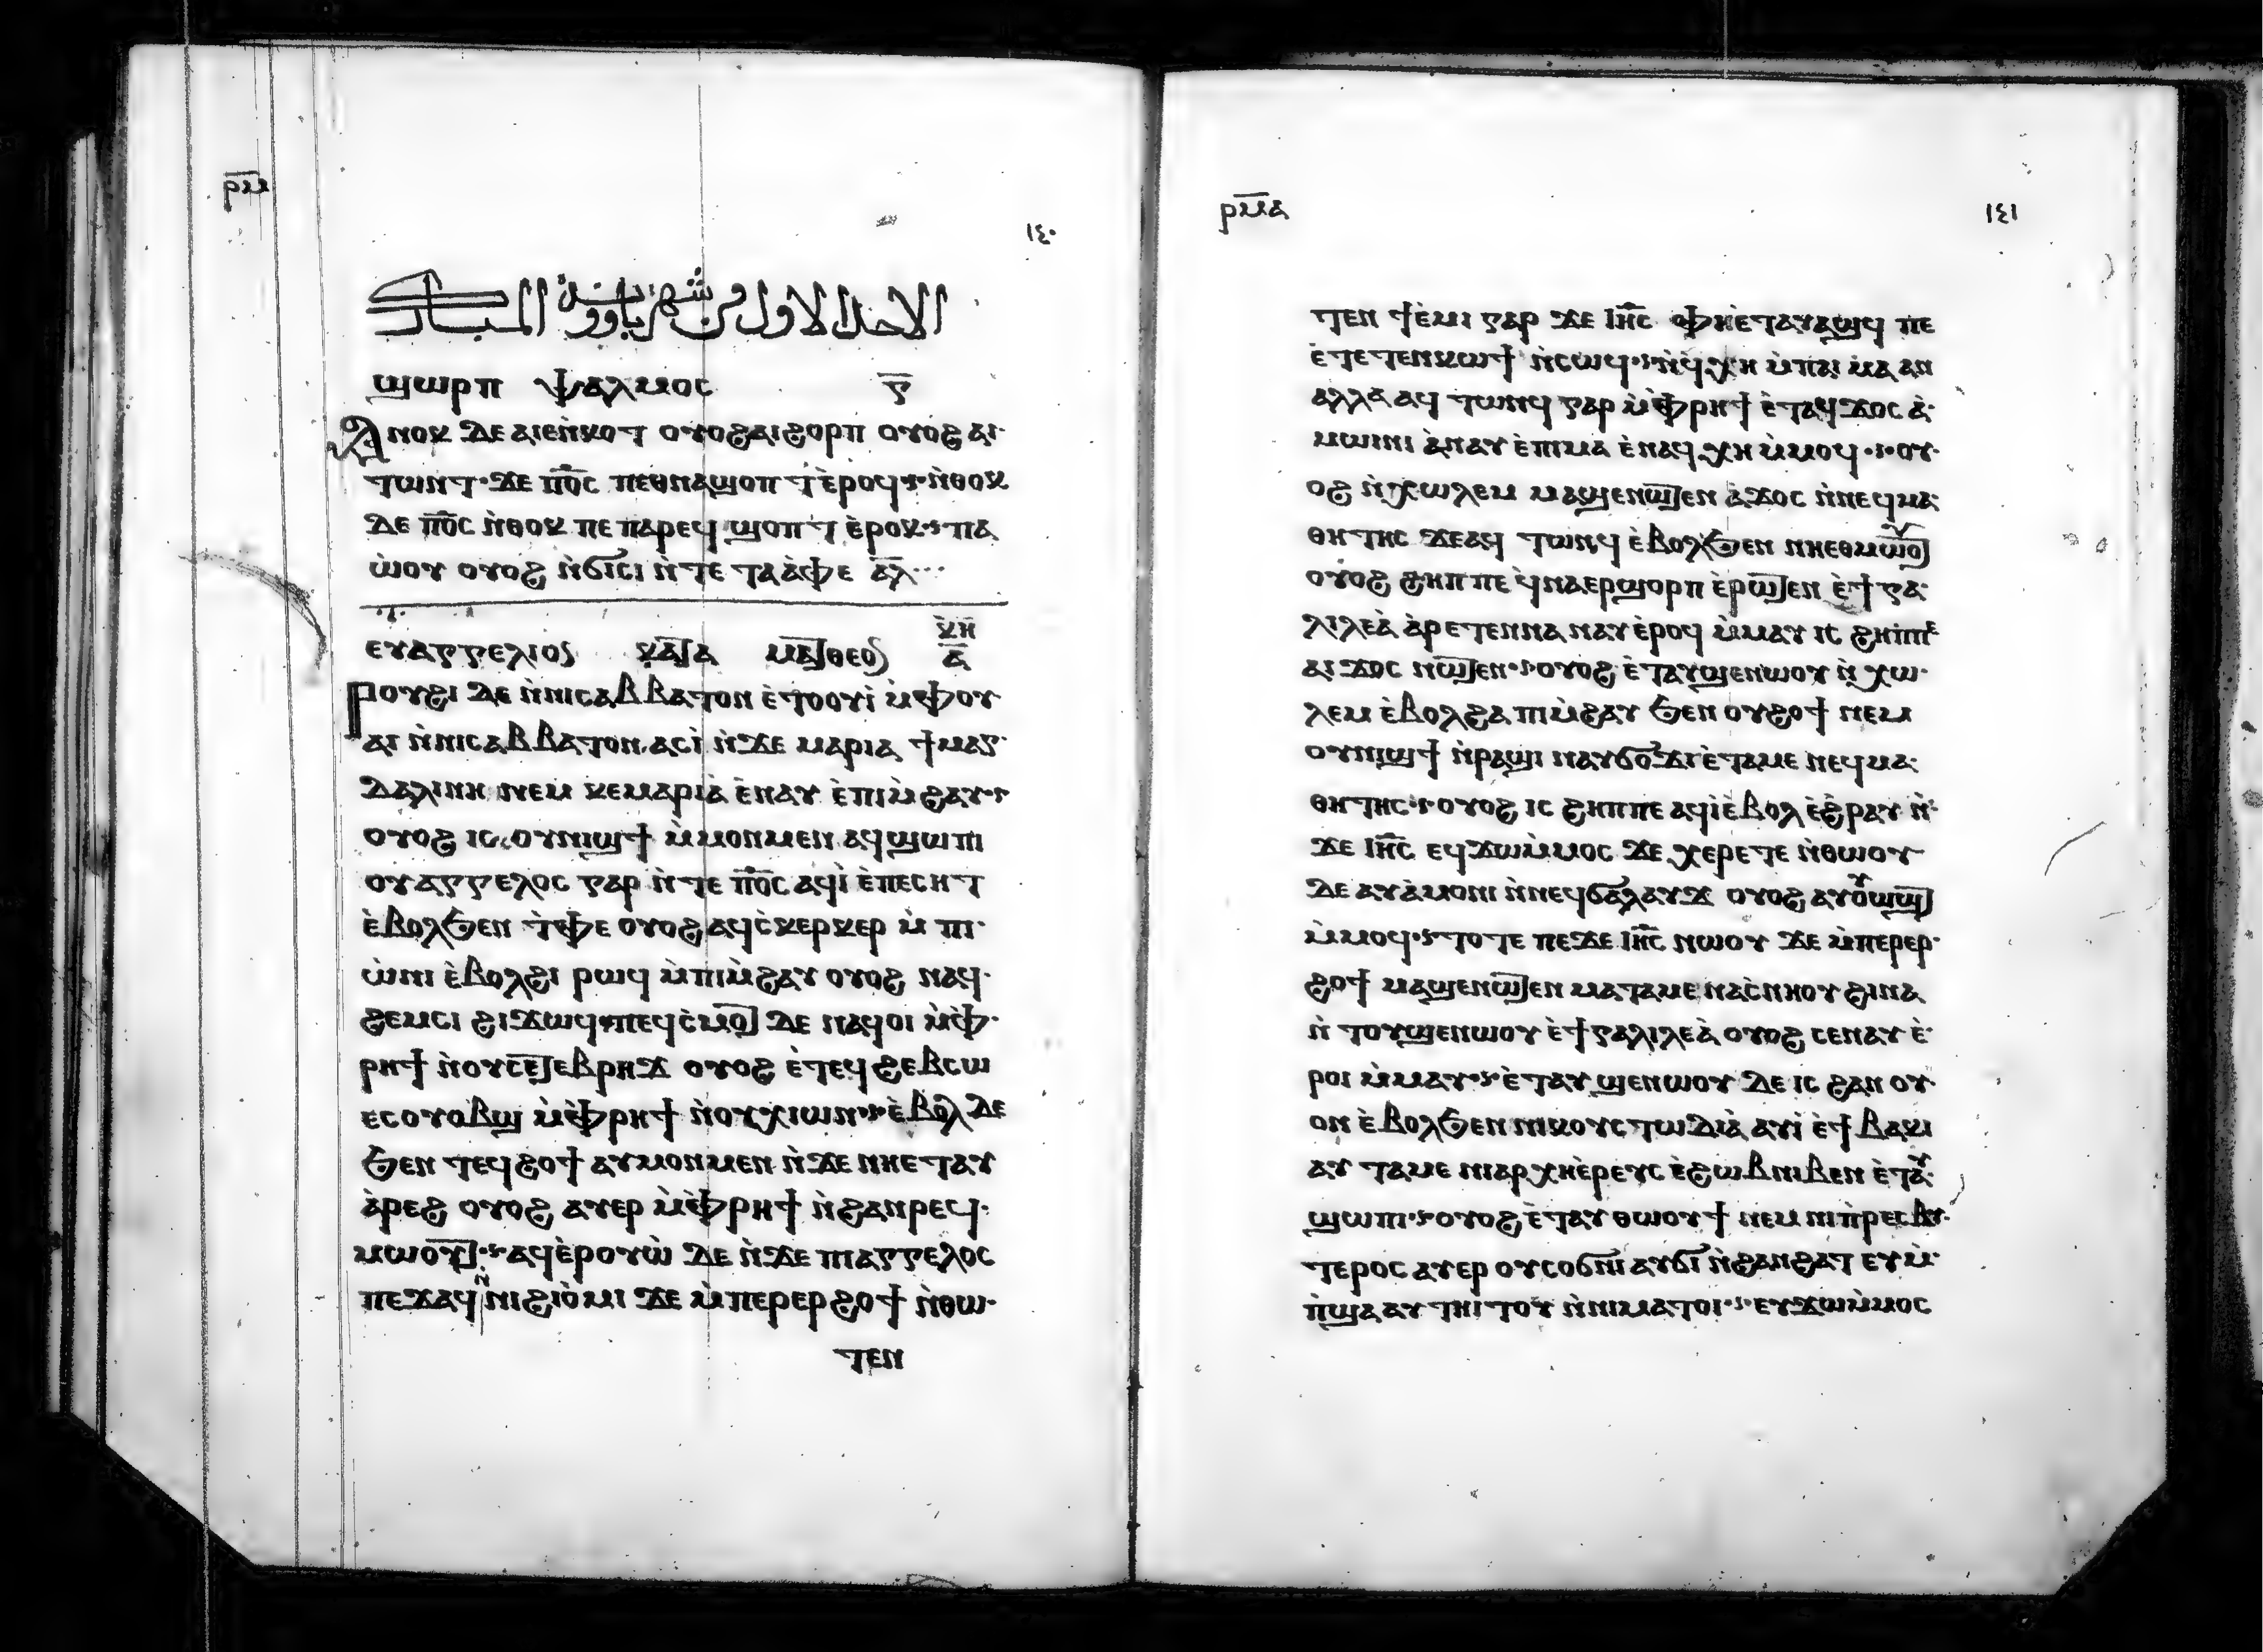 ⲣ̅ⲙ̅
١٤٠
الاحد الاول من شهر باوونه المبارك
ϣⲱⲣⲡ ⲯⲁⲗⲙⲟⲥ ⲅ̅
Ⲁⲛⲟⲕ ⲇⲉ ⲁⲓⲉⲛ̀ⲕⲟⲧ ⲟⲩⲟϩ ⲁⲓϩⲟⲣⲡ ⲟⲩⲟϩ ⲁⲓ
ⲧⲱⲛⲧ ϫⲉ ⲡ̅ⲟ̅ⲥ̅ ⲡⲉⲑⲛⲁϣⲟⲡⲧ ⲉ̀ⲣⲟϥ ⲛ̀ⲑⲟⲕ
ⲇⲉ ⲡ̅ⲟ̅ⲥ̅ ⲛ̀ⲑⲟⲕ ⲡⲉ ⲡⲁⲣⲉϥϣⲟⲡⲧ ⲉ̀ⲣⲟⲕ ⲡⲁ
ⲱ̀ⲟⲩ ⲟⲩⲟϩ ⲛ̀ϭⲓⲥⲓ ⲛ̀ⲧⲉ ⲧⲁⲁ̀ⲫⲉ ⲁ̅ⲗ̅
ⲉⲩⲁⲅⲅⲉⲗⲓⲟⲥ ⲕⲁⲧⲁ ⲙⲁⲧⲑⲉⲟⲥ ⲕ̅ⲏ̅ ⲁ̅
Ⲣⲟⲩϩⲓ ⲇⲉ ⲛ̀ⲛⲓⲥⲁⲃⲃⲁⲧⲟⲛ ⲉ̀ⲧⲟⲟⲩⲓ̀ ⲙ̀ⲫⲟⲩ
ⲁⲓ ⲛ̀ⲛⲓⲥⲁⲃⲃⲁⲧⲟⲛ ⲁⲥⲓ̀ ⲛ̀ϫⲉ ⲙⲁⲣⲓⲁ ϯⲙⲁⲅ
ⲇⲁⲗⲓⲛⲏ ⲛⲉⲙ ⲕⲉⲙⲁⲣⲓⲁ̀ ⲉ̀ⲛⲁⲩ ⲉ̀ⲡⲓⲙ̀ϩⲁⲩ
ⲟⲩⲟϩ ⲓⲥ ⲟⲩⲛⲓϣϯ ⲙ̀ⲙⲟⲛⲙⲉⲛ ⲁϥϣⲱⲡⲓ
ⲟⲩⲁⲅⲅⲉⲗⲟⲥ ⲅⲁⲣ ⲛ̀ⲧⲉ ⲡ̅ⲟ̅ⲥ̅ ⲁϥⲓ̀ ⲉ̀ⲡⲉⲥⲏⲧ
ⲉ̀ⲃⲟⲗϧⲉⲛ ⲧ̀ⲫⲉ ⲟⲩⲟϩ ⲁϥⲥ̀ⲕⲉⲣⲕⲉⲣ ⲙ̀ⲡⲓ
ⲱ̀ⲛⲓ ⲉ̀ⲃⲟⲗϩⲓ ⲣⲱϥ ⲙ̀ⲡⲓⲙ̀ϩⲁⲩ ⲟⲩⲟϩ ⲛⲁϥ
ϩⲉⲙⲥⲓ ϩⲓϫⲱϥ ⲡⲉϥⲥ̀ⲙⲟⲧ ⲇⲉ ⲛⲁϥⲟⲓ ⲙ̀ⲫ
ⲣⲏϯ ⲛ̀ⲟⲩⲥⲉⲧⲉⲃⲣⲏϫ ⲟⲩⲟϩ ⲉ̀ⲧⲉϥϩⲉⲃⲥⲱ
ⲉⲥⲟⲩⲟⲃϣ ⲙ̀ⲫⲣⲏϯ ⲛ̀ⲟⲩⲭⲓⲱⲛ ⲉ̀ⲃⲟⲗ ⲇⲉ
ϧⲉⲛ ⲧⲉϥϩⲟϯ ⲁⲩⲙⲟⲛⲙⲉⲛ ⲛ̀ϫⲉ ⲛⲏⲉⲧⲁⲩ
ⲁ̀ⲣⲉϩ ⲟⲩⲟϩ ⲁⲩⲉⲣ ⲙ̀ⲫⲣⲏϯ ⲛ̀ϩⲁⲛⲣⲉϥ
ⲙⲱⲟⲩⲧ ⲁϥⲉ̀ⲣⲟⲩⲱ̀ ⲇⲉ ⲛ̀ϫⲉ ⲡⲓⲁⲅⲅⲉⲗⲟⲥ
ⲡⲉϫⲁϥ ⲛ̀ⲛⲓϩⲓⲟ̀ⲙⲓ ϫⲉ ⲙ̀ⲡⲉⲣⲉⲣϩⲟϯ ⲛ̀ⲑⲱ
ⲧⲉⲛ
ⲣ̅ⲙ̅ⲁ̅
١٤١
ⲧⲉⲛ ϯⲉ̀ⲙⲓ ⲅⲁⲣ ϫⲉ ⲓⲏ̅ⲥ̅ ⲫⲏⲉ̀ⲧⲁⲩⲁϣϥ ⲡⲉ
ⲉ̀ⲧⲉⲧⲉⲛⲕⲱϯ ⲛ̀ⲥⲱϥ ⲛ̀ϥⲭⲏ ⲙ̀ⲡⲁⲓ ⲙⲁ ⲁⲛ
ⲁⲗⲗⲁ ⲁϥ ⲧⲱⲛϥ ⲅⲁⲣ ⲙ̀ⲫⲣⲏϯ ⲉ̀ⲧⲁϥϫⲟⲥ ⲁ̀
ⲙⲱⲓⲛⲓ ⲁ̀ⲛⲁⲩ ⲉ̀ⲡⲓⲙⲁ ⲉ̀ⲛⲁϥⲭⲏ ⲙ̀ⲙⲟϥ ⲟⲩ
ⲟϩ ⲛ̀ⲭⲱⲗⲉⲙ ⲙⲁϣⲉⲛⲱⲧⲉⲛ ⲁ̀ϫⲟⲥ ⲛ̀ⲛⲉϥⲙⲁ
ⲑⲏⲧⲏⲥ ϫⲉ ⲁϥ ⲧⲱⲛϥ ⲉ̀ⲃⲟⲗϧⲉⲛ ⲛⲏⲉⲑⲙⲱⲟⲩⲧ
ⲟⲩⲟϩ ϩⲏⲡⲡⲉ ϥ̀ⲛⲁⲉⲣϣⲟⲣⲡ ⲉ̀ⲣⲱⲧⲉⲛ ⲉ̀ϯⲅⲁ
ⲗⲓⲗⲉⲁ̀ ⲁ̀ⲣⲉⲧⲉⲛⲛⲁⲛⲁⲩ ⲉ̀ⲣⲟϥ ⲙ̀ⲙⲁⲩ ⲓⲥ ϩⲏⲡⲡⲉ
ⲁⲓϫⲟⲥ ⲛⲱⲧⲉⲛ ⲟⲩⲟϩ ⲉ̀ⲧⲁⲩϣⲉⲛⲱⲟⲩ ⲛ̀ⲭⲱ
ⲗⲉⲙ ⲉ̀ⲃⲟⲗϩⲁ ⲡⲓⲙ̀ϩⲁⲩ ϧⲉⲛ ⲟⲩϩⲟϯ ⲛⲉⲙ
ⲟⲩⲛⲓϣϯ ⲛ̀ⲣⲁϣⲓ ⲛⲁⲩϭⲟϫⲓ ⲉ̀ⲧⲁⲙⲉ ⲛⲉϥⲙⲁ
ⲑⲏⲧⲏⲥ ⲟⲩⲟϩ ⲓⲥ ϩⲏⲡⲡⲉ ⲁϥⲓ̀ⲉ̀ⲃⲟⲗ ⲉ̀ϩⲣⲁⲩ ⲛ̀
ϫⲉ ⲓⲏ̅ⲥ̅ ⲉϥϫⲱⲙ̀ⲙⲟⲥ ϫⲉ ⲭⲉⲣⲉⲧⲉ ⲛ̀ⲑⲱⲟⲩ
ⲇⲉ ⲁⲩⲁ̀ⲙⲟⲛⲓ ⲛ̀ⲛⲉϥϭⲁⲗⲁⲩϫ ⲟⲩⲟϩ ⲁⲩⲟⲩⲱϣⲧ
ⲙ̀ⲙⲟϥ ⲧⲟⲧⲉ ⲡⲉϫⲉ ⲓⲏ̅ⲥ̅ ⲛⲱⲟⲩ ϫⲉ ⲙ̀ⲡⲉⲣⲉⲣ
ϩⲟϯ ⲙⲁϣⲉⲛⲱⲧⲉⲛ ⲙⲁⲧⲁⲙⲉ ⲛⲁⲥ̀ⲛⲏⲟⲩ ϩⲓⲛⲁ
ⲛ̀ⲧⲟⲩϣⲉⲛⲱⲟⲩ ⲉ̀ϯⲅⲁⲗⲓⲗⲉⲁ̀ ⲟⲩⲟϩ ⲥⲉⲛⲁⲩ ⲉ̀
ⲣⲟⲓ ⲙ̀ⲙⲁⲩ ⲉ̀ⲧⲁⲩϣⲉⲛⲱⲟⲩ ⲇⲉ ⲓⲥ ϩⲁⲛ ⲟⲩ
ⲟⲛ ⲉ̀ⲃⲟⲗϧⲉⲛ ⲛⲓⲕⲟⲩⲥⲧⲱⲇⲓⲁ̀ ⲁⲩⲓ̀ ⲉ̀ϯⲃⲁⲕⲓ
ⲁⲩ ⲧⲁⲙⲉ ⲛⲓⲁⲣⲭⲏⲉ̀ⲣⲉⲩⲥ ⲉ̀ϩⲱⲃ ⲛⲓⲃⲉⲛ ⲉ̀ⲧⲁⲩ
ϣⲱⲡⲓ ⲟⲩⲟϩ ⲉ̀ⲧⲁⲩ ⲑⲱⲟⲩϯ ⲛⲉⲙ ⲛⲓⲡ̀ⲣⲉⲥⲃⲩ
ⲧⲉⲣⲟⲥ ⲁⲩⲉⲣ ⲟⲩⲥⲟϭⲛⲓ ⲁⲩϭⲓ ⲛ̀ϩⲁⲛϩⲁⲧ ⲉⲩⲙ̀
ⲡ̀ϣⲁ ⲁⲩ ⲧⲏⲓⲧⲟⲩ ⲛ̀ⲛⲓⲙⲁⲧⲟⲓ ⲉⲩϫⲱⲙ̀ⲙⲟⲥ